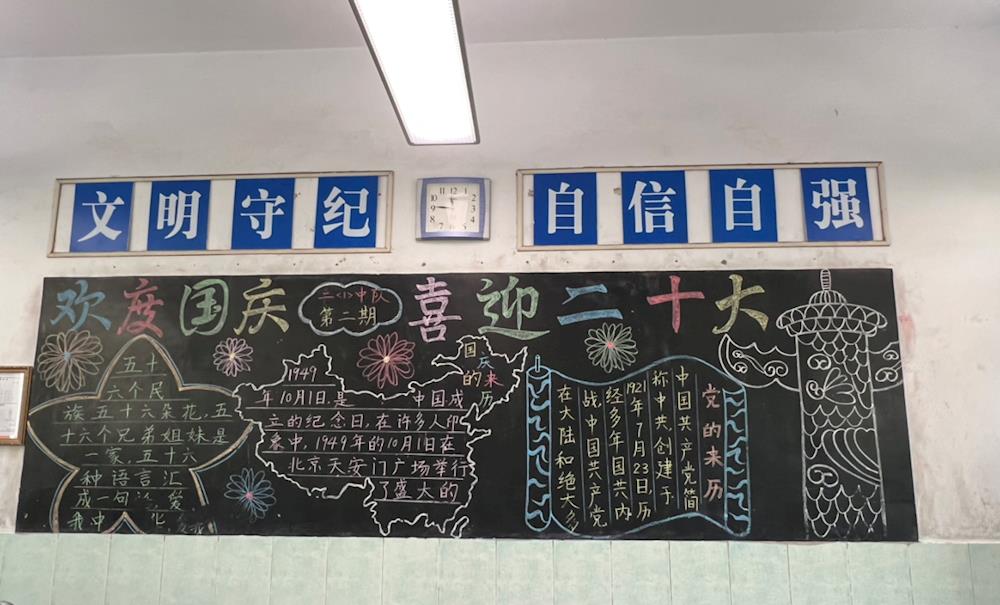 文明守纪
自信自强
欢度国庆
二<1>中队
第二期
喜迎二十大
五十
六个民
族五十六朵花,五
十六个兄弟姐妹是
一家,五十六
种语言汇
成一句 爱
我中 华
国庆的来历
1949
年10月1日.是 中国成
立的纪念日,在许多人印
象中,1949年的10月1日在
北京天安门广场举行
了盛大的
党的来历
中国共产党简
称中共创建于
1921年7月23日,历
经多年国共内
战,中国共产党
在大陆和绝大多